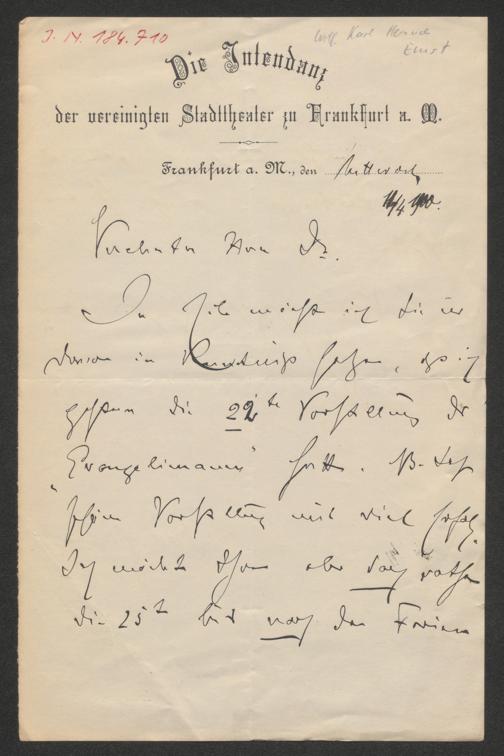 J. N. 184.710
Karl
Ernst
Die Intendanz
der vereinigten Stadttheater zu Frankfurt a. M.
Frankfurt a. M., den Mittwoch
/4 1900.
Verehrter Herr Dr.
In Eile möchte ich Sie nur
davon in Kenntniß setzen, daß ich
gestern die 22te Vorstellung des
„Evangelimann" hatte.
schöne Vorstellung mit viel Erfolg.
Ich möchte Ihnen aber doch rathen
die 25te bis nach den Ferien